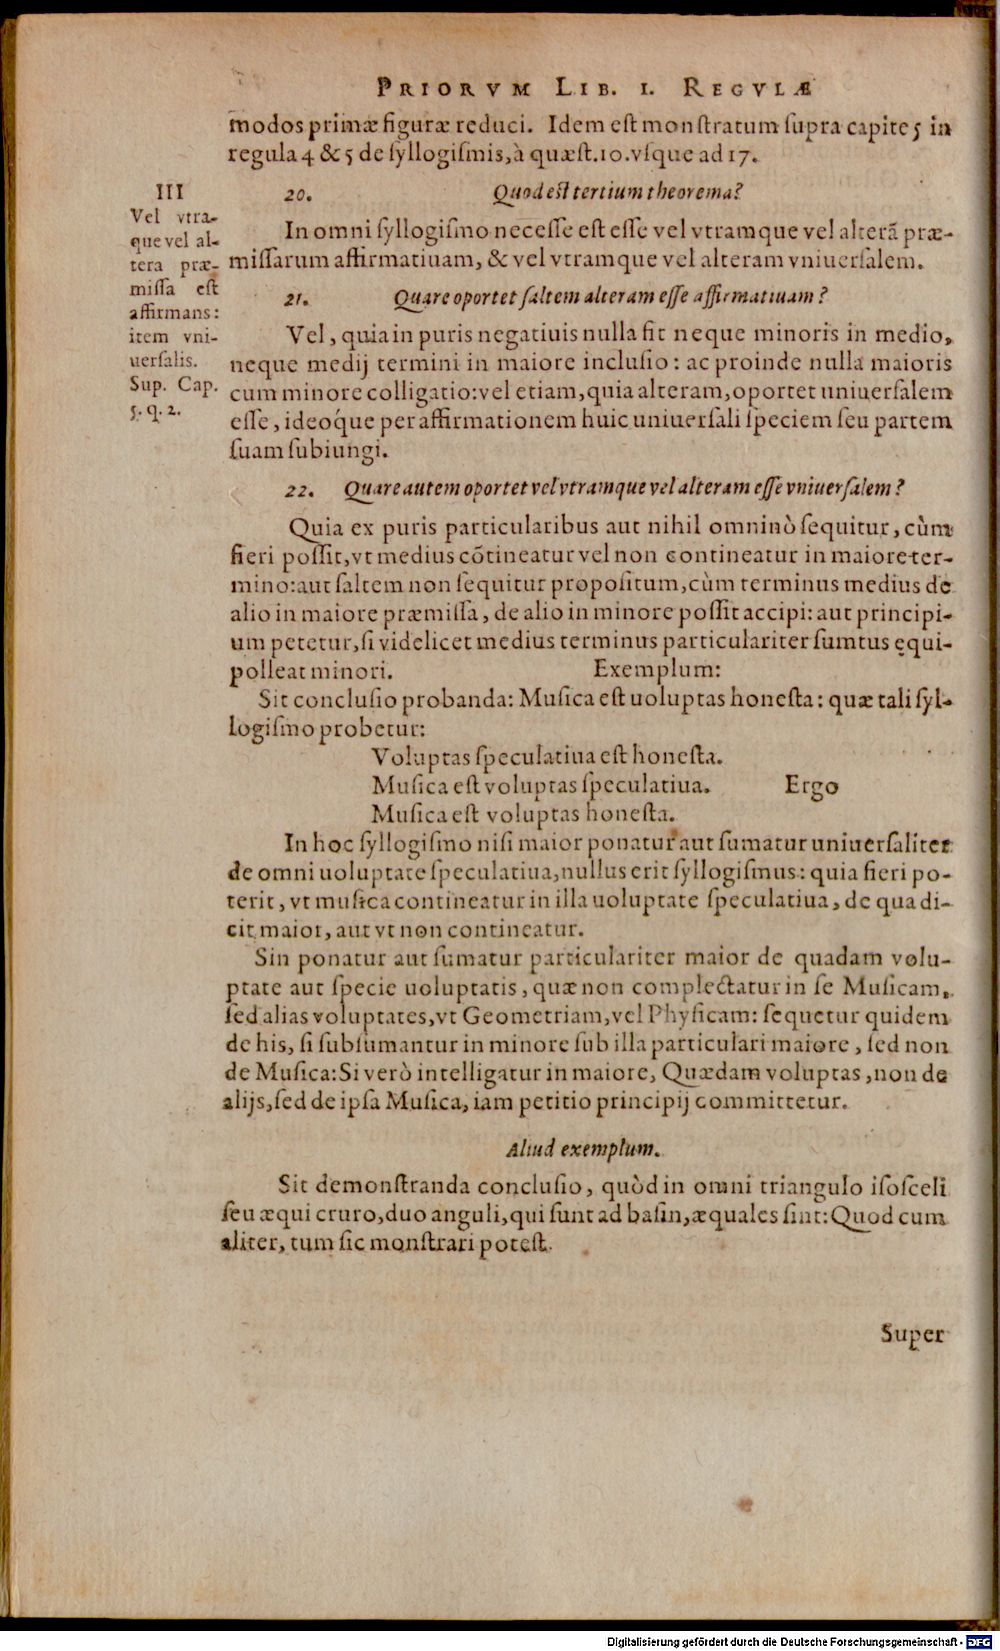 PRIORVM LIB. I. REGVLÆ
modos primæ figuræ reduci. Idem est monstratum supra capite 5 in
regula 4 & 5 de syllogismis, à quæst. 10. vsque ad 17.
III
Vel vtra-
que vel al-
tera præ-
missa est
affirmans:
item vni-
uersalis.
Sup. Cap.
5. q. 2.
20. Quod est tertium theorema?
In omni syllogismo necesse est esse vel vtramque vel alterã præ-
missarum affirmatiuam, & vel vtramque vel alteram vniuersalem.
21. Quare oportet saltem alteram esse affirmatiuam?
Vel, quia in puris negatiuis nulla fit neque minoris in medio,
neque medij termini in maiore inclusio: ac proinde nulla maioris
cum minore colligatio: vel etiam, quia alteram, oportet uniuersalem
esse, ideóque per affirmationem huic uniuersali speciem seu partem
suam subiungi.
22. Quare autem oportet vel vtramque vel alteram esse vniuersalem?
Quia ex puris particularibus aut nihil omninò sequitur, cùm
fieri possit, vt medius cõtineatur vel non contineatur in maiore ter-
mino: aut saltem non sequitur propositum, cùm terminus medius de
alio in maiore præmissa, de alio in minore possit accipi: aut principi-
um petetur, si videlicet medius terminus particulariter sumtus ęqui-
polleat minori. Exemplum:
Sit conclusio probanda: Musica est uoluptas honesta: quæ tali syl-
logismo probetur:
Voluptas speculatiua est honesta.
Musica est voluptas speculatiua. Ergo
Musica est voluptas honesta.
In hoc syllogismo nisi maior ponatur aut sumatur uniuersaliter
de omni uoluptate speculatiua, nullus erit syllogismus: quia fieri po-
terit, vt musica contineatur in illa uoluptate speculatiua, de qua di-
cit maior, aut vt non contineatur.
Sin ponatur aut sumatur particulariter maior de quadam volu-
ptate aut specie uoluptatis, quæ non complectatur in se Musicam,
sed alias voluptates, vt Geometriam, vel Physicam: sequetur quidem
de his, si subsumantur in minore sub illa particulari maiore, sed non
de Musica: Si verò intelligatur in maiore, Quædam voluptas, non de
alijs, sed de ipsa Musica, iam petitio principij committetur.
Aliud exemplum.
Sit demonstranda conclusio, quòd in omni triangulo isosceli
seu æqui cruro, duo anguli, qui sunt ad basin, æquales sint: Quod cum
aliter, tum sic monstrari potest.
Super
Digitalisierung gefördert durch die Deutsche Forschungsgemeinschaft - DFG